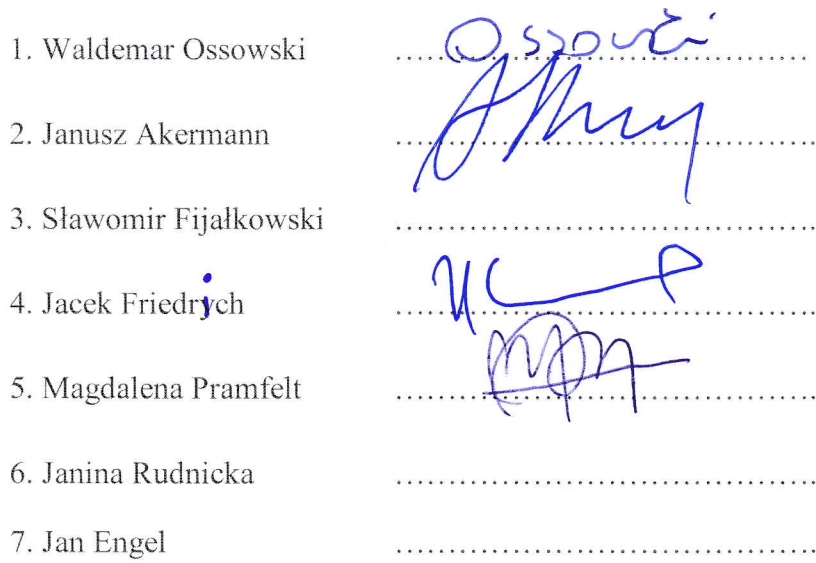 1. Waldemar Ossowski ........................................ Ossowski
2. Janusz Akermann ........................................
3. Sławomir Fijałkowski ........................................
4. Jacek Friedrich ........................................
5. Magdalena Pramfelt ........................................
6. Janina Rudnicka ........................................
7. Jan Engel ........................................